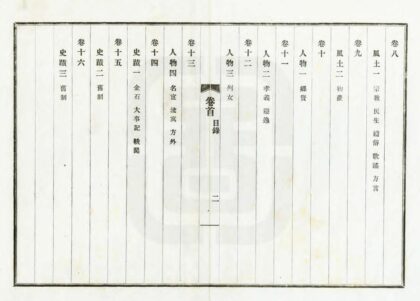 卷八
風土一 宗教 民生 禮俗 歌謠 方言
卷九
風土二 物產
卷十
人物一 鄉賢
卷十一
人物二 孝義 隱逸
卷十二
人物三 列女
卷首 目錄 二
卷十三
人物四 名宦 流寓 方外
卷十四
史蹟一 金石 大事記 軼聞
卷十五
史蹟二 舊制
卷十六
史蹟三 舊制